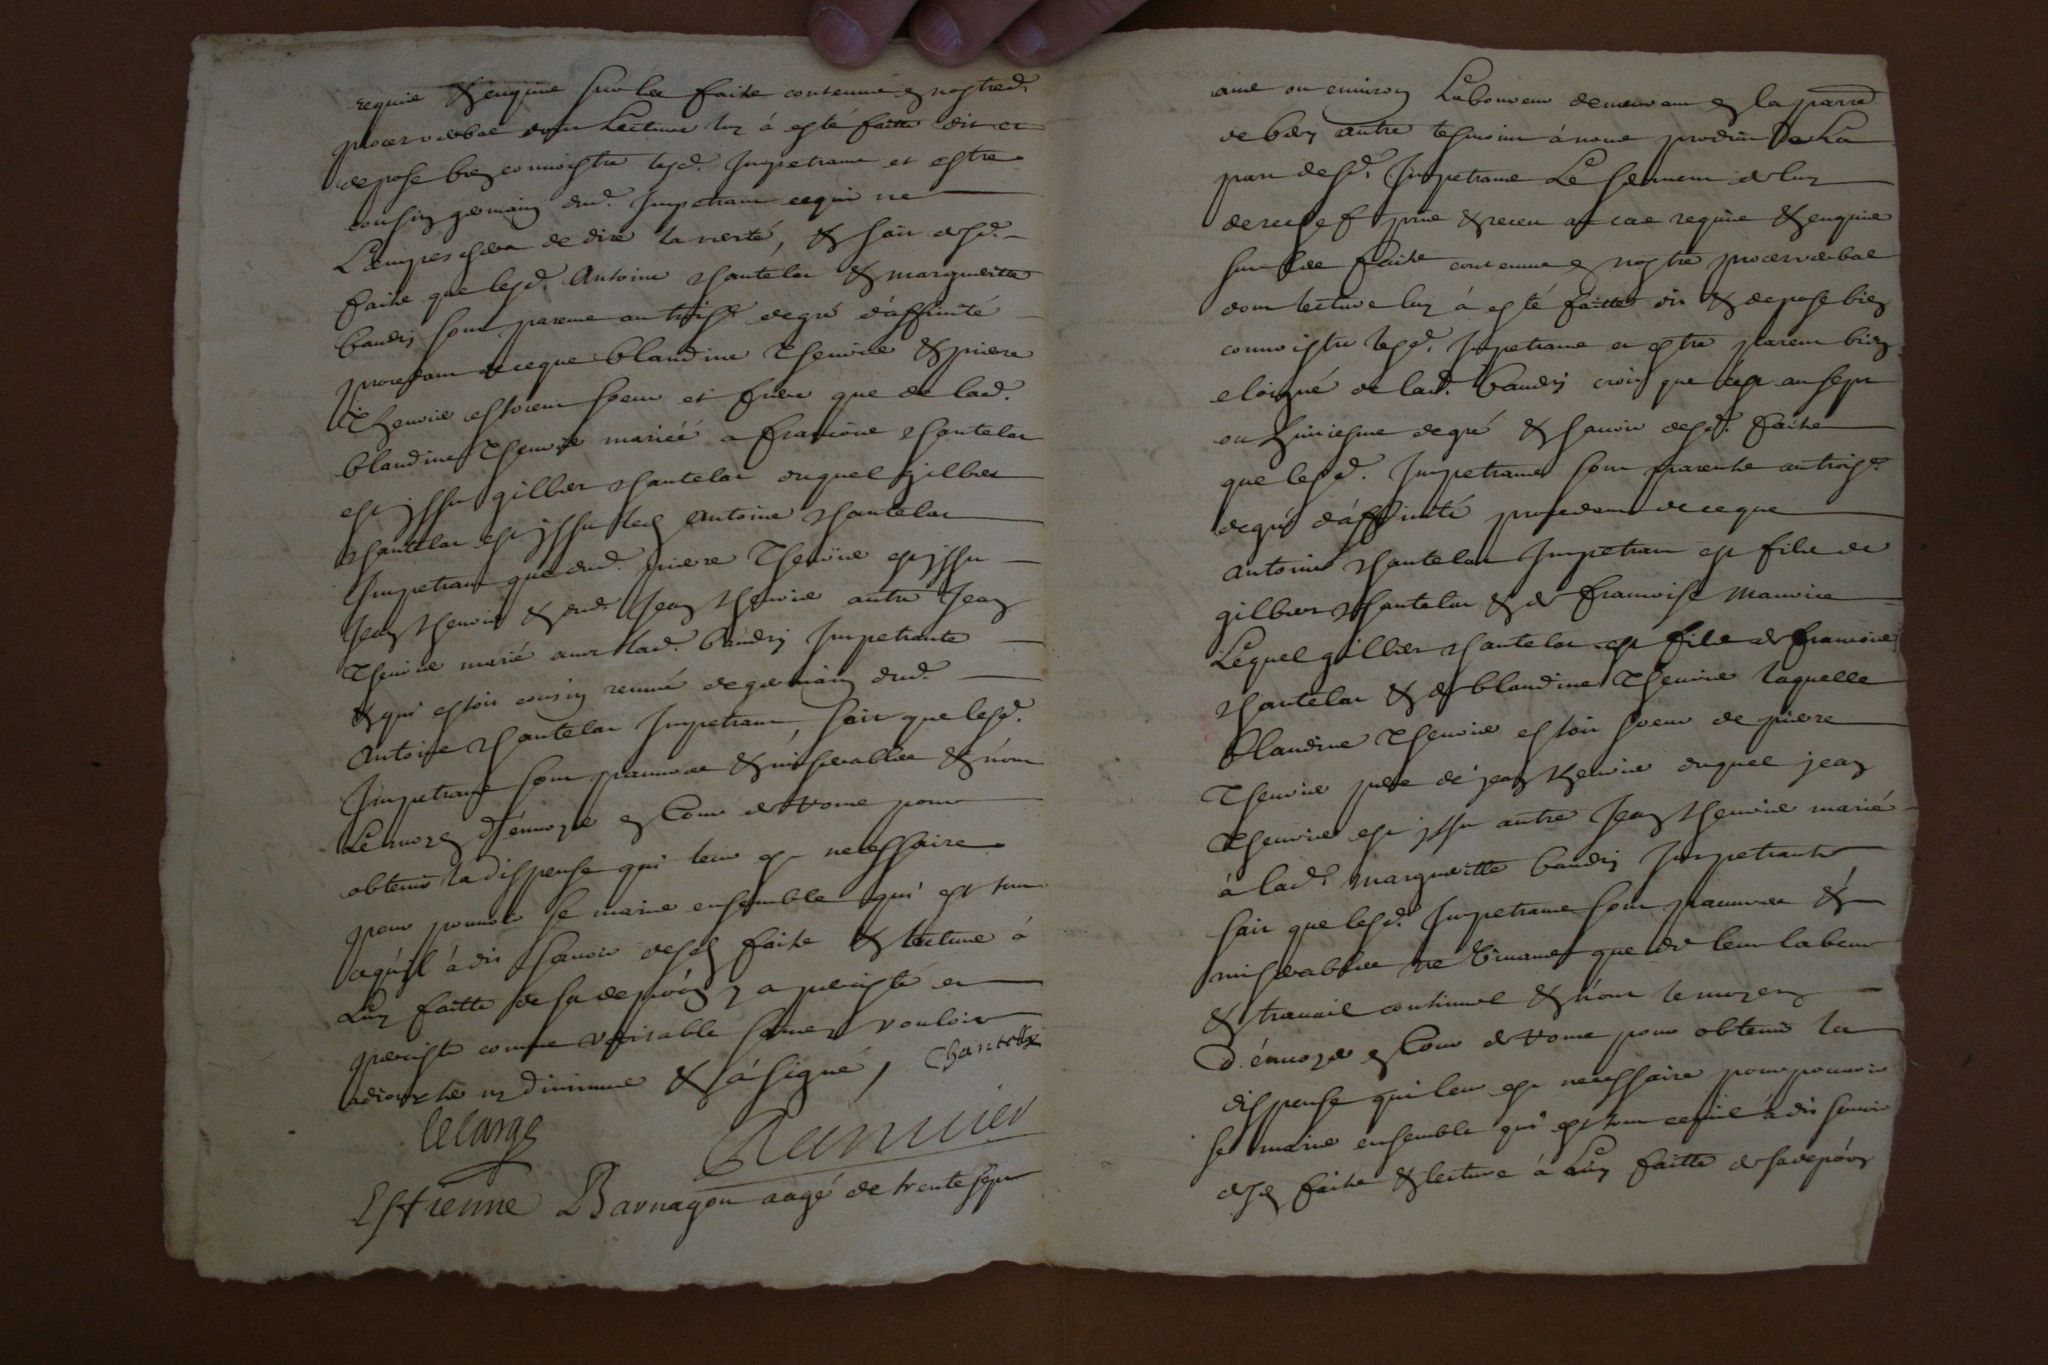 requis & enquis sur les faits contenus en nostred.
procès verbal dont lecture luy à esté faitte dit et
depose bien connoistre lesd. Impetrans et estre
cousin germain dud. Impetrant ce qui ne
L'empeschera de dire la verité, & sait desd.
faits que lesd. Antoine Chantelat & margueritte
baudin sont parens au trois.e degré d'affinité
procedant de ce que blandine Thevoire & pierre
Thevoire estoient soeur et frere que de lad.
blandine Thevoire mariée a francois Chantelat
est yssu gilbert Chantelat duquel gilbert
Chantelat est yssu led. Antoine Chantelat
Impetrant que dud. pierre Thevoire est yssu
Jean Thevoire & dud. Jean Thevoire autre Jean
Thevoire marié avec lad. baudin Impetrante
& qui estoit cousin remué de germain dud.
Antoine Chantelat Impetrant, sait que lesd.
Impetrans sont pauvres & miserables & n'ont
Le moyen d'envoyer en Cour de Rome pour
obtenir la dispense qui leur est necessaire
pour pouvoir se marier ensemble qui est tout
ce qu'il à dit sçavoir desd. faits & lecture à
Luy faitte de sa depo.on y a persisté et
persiste comme veritable sans y vouloir
adiouxter ny diminuer & à signé, Chantelat
Lelarge
Estienne Barnagon aagé de trente sept
ans ou environ Laboureur demeurant en la parr.e
de bien autre tesmoin à nous produit de La
part desd. Impetrans Le serment de luy
derechef pris & receu au cas requis & enquis
sur les faits contenus en nostre procès verbal
dont lecture luy à esté faitte dit & depose bien
connoistre lesd. Impetrans et estre parent bien
eloigné de lad. baudin croit que c'est au sept
ou huictiesme degré & sçavoir desd. faits
que lesd. Impetrans sont parents au trois.e
degré d'affinité procedant de ce que
Antoine Chantelat Impetrant est fils de
gilbert Chantelat & de francoise Maurice
Lequel gilbert Chantelat est fils de francois
Chantelat & de blandine Thevoire laquelle
blandine Thevoire estoit soeur de pierre
Thevoire pere de jean Thevoire duquel jean
Thevoire est yssu autre Jean Thevoire marié
à lad. margueritte baudin Impetrante
sait que lesd. Impetrans sont pauvres &
miserables ne vivants que de leur labeur
& travail continuel & n'ont le moyen
d'envoyer en Cour de Rome pour obtenir la
dispense qui leur est necessaire pour pouvoir
se marier ensemble qui est tout ce qu'il à dit sçavoir
desd. faits & lecture à Luy faitte de sa depo.on